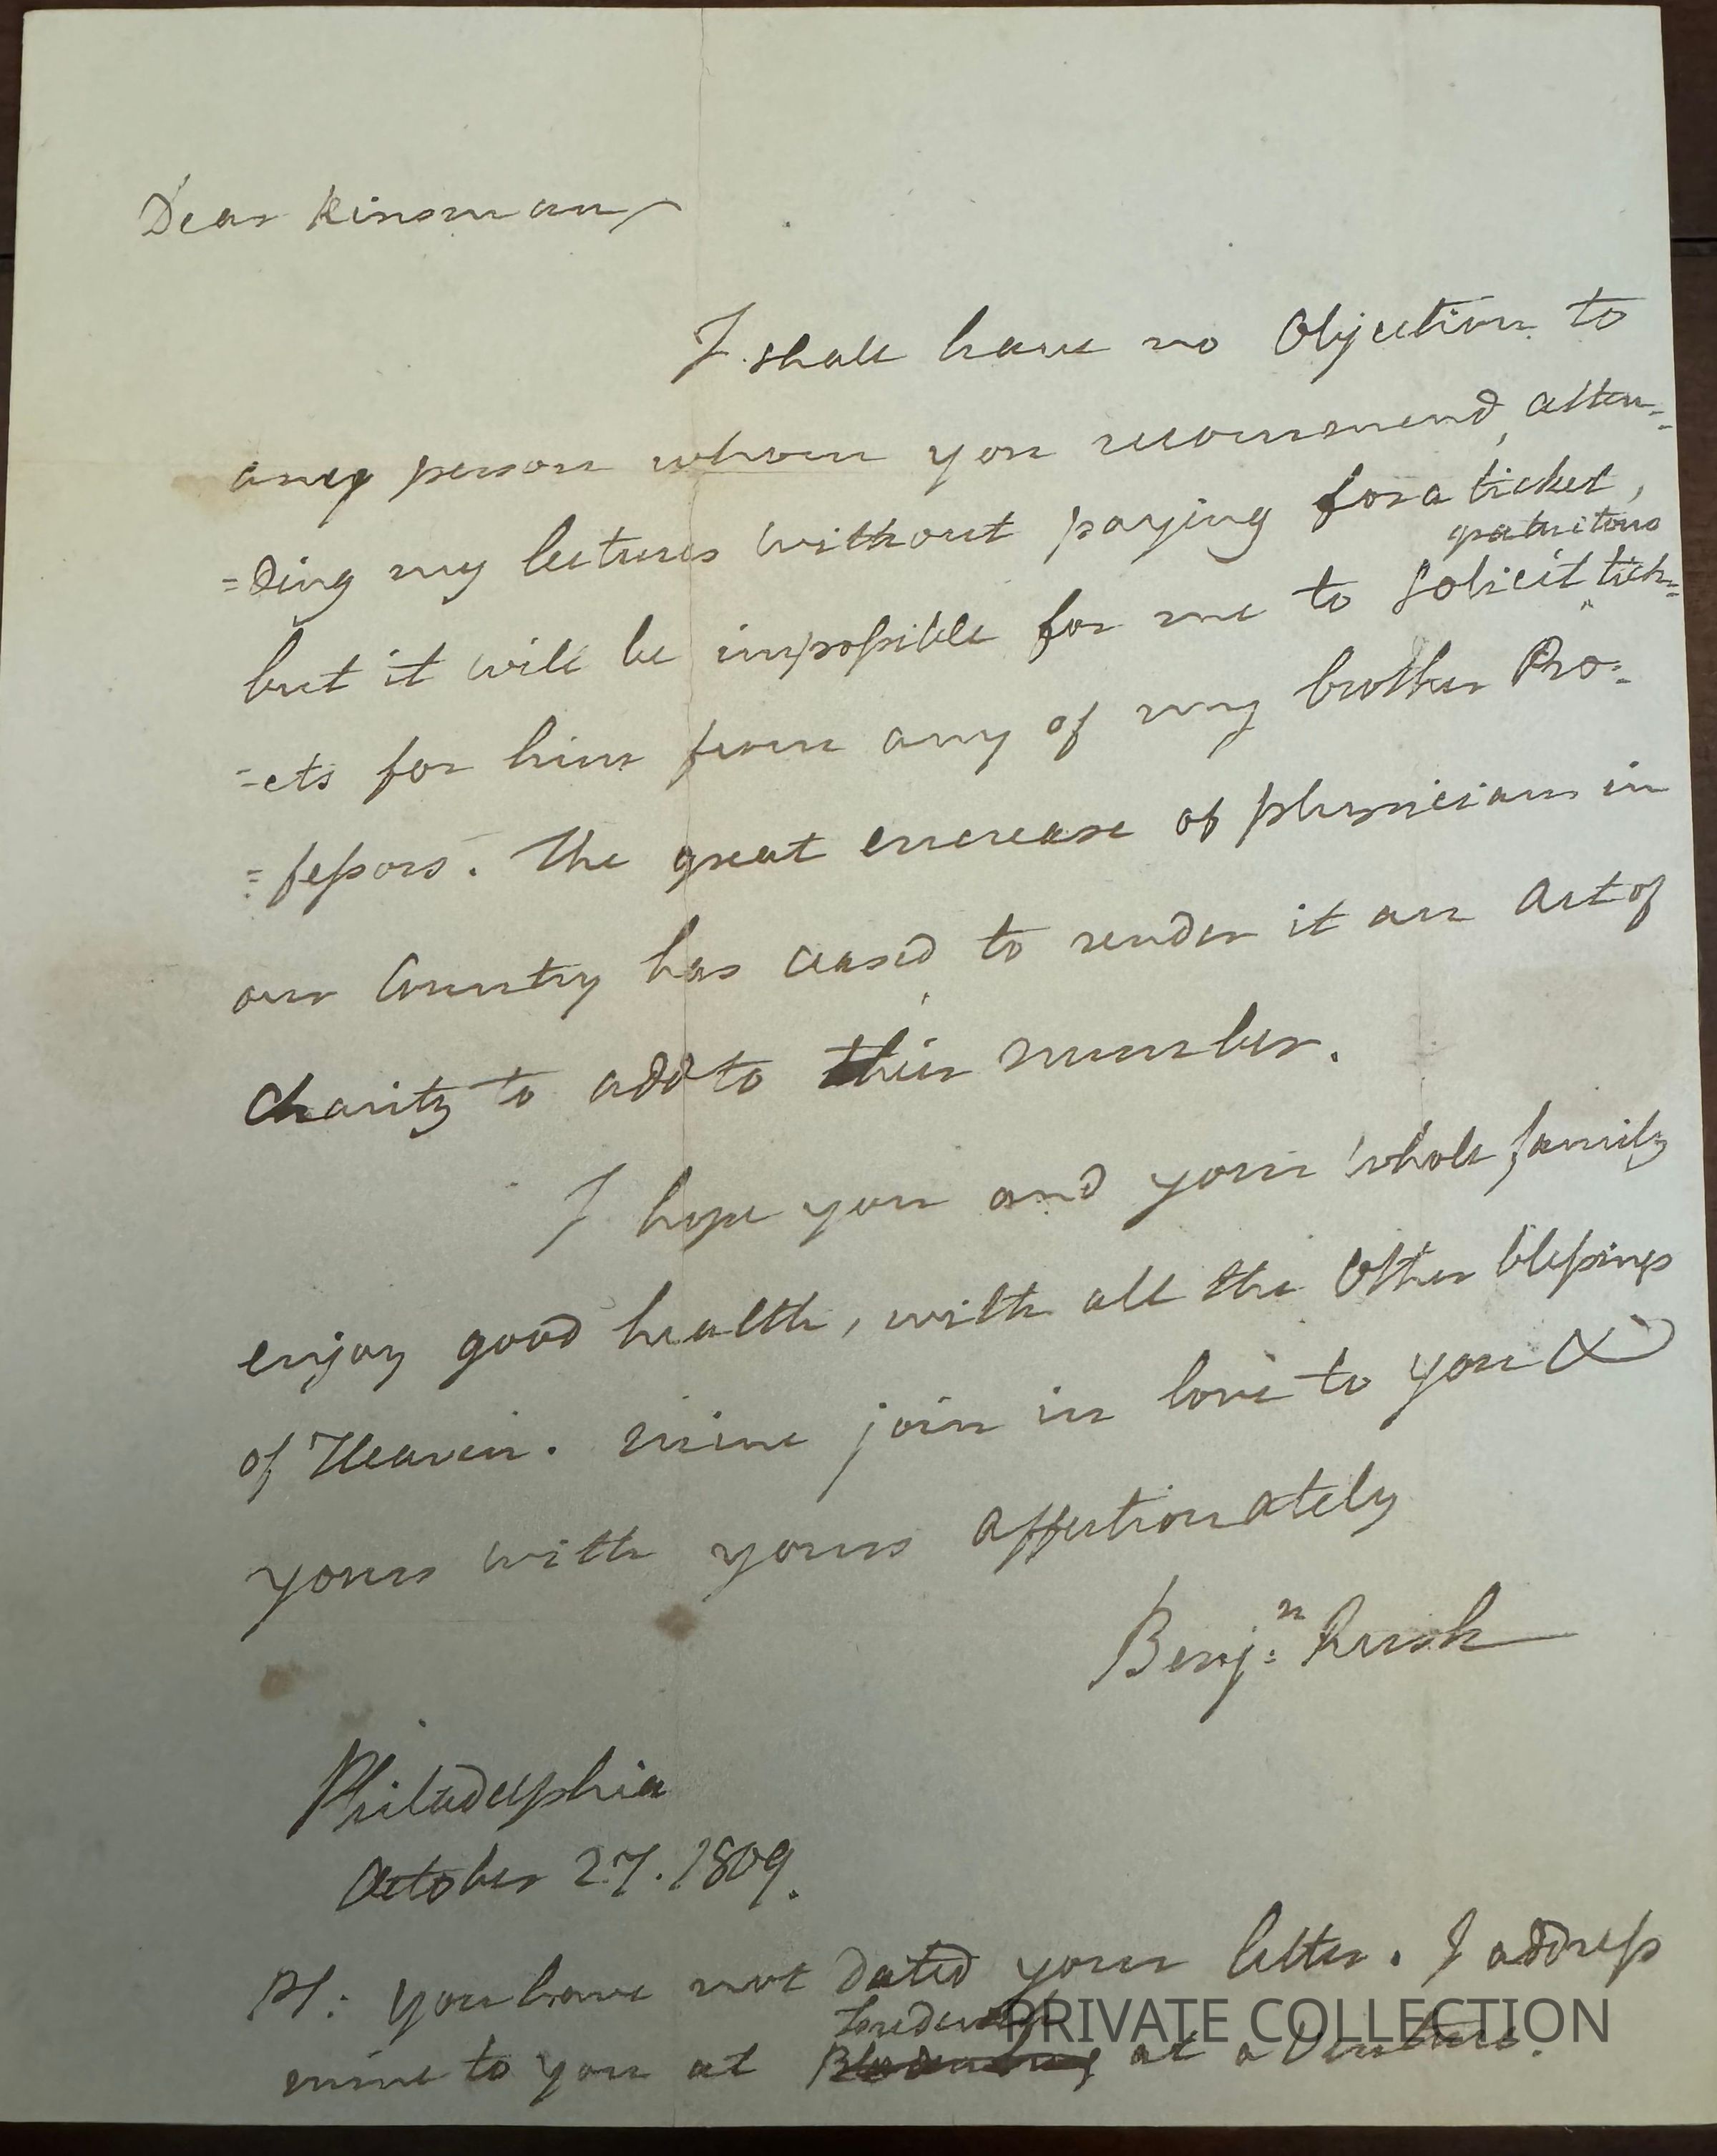 Dear Kinsman,
I shall have no Objection to
any person whom you recommend, atten=
=ding my lectures without paying for a ticket,
gratuitous
but it will be impossible for me to solicit tick=
=ets for him from any of my brother Pro=
=fessors. The great encrease of physicians in
our Country has ceased to render it an Act of
Charity to add to their number.
I hope you and your whole family
enjoy good health, with all the Other blessings
of Heaven. Mine join in love to you &
yours with yours affectionately
Benj:n Rush
Philadelphia
October 27. 1809.
PS: you have not dated your letter. I address
mine to you at at a Venture.
PRIVATE COLLECTION